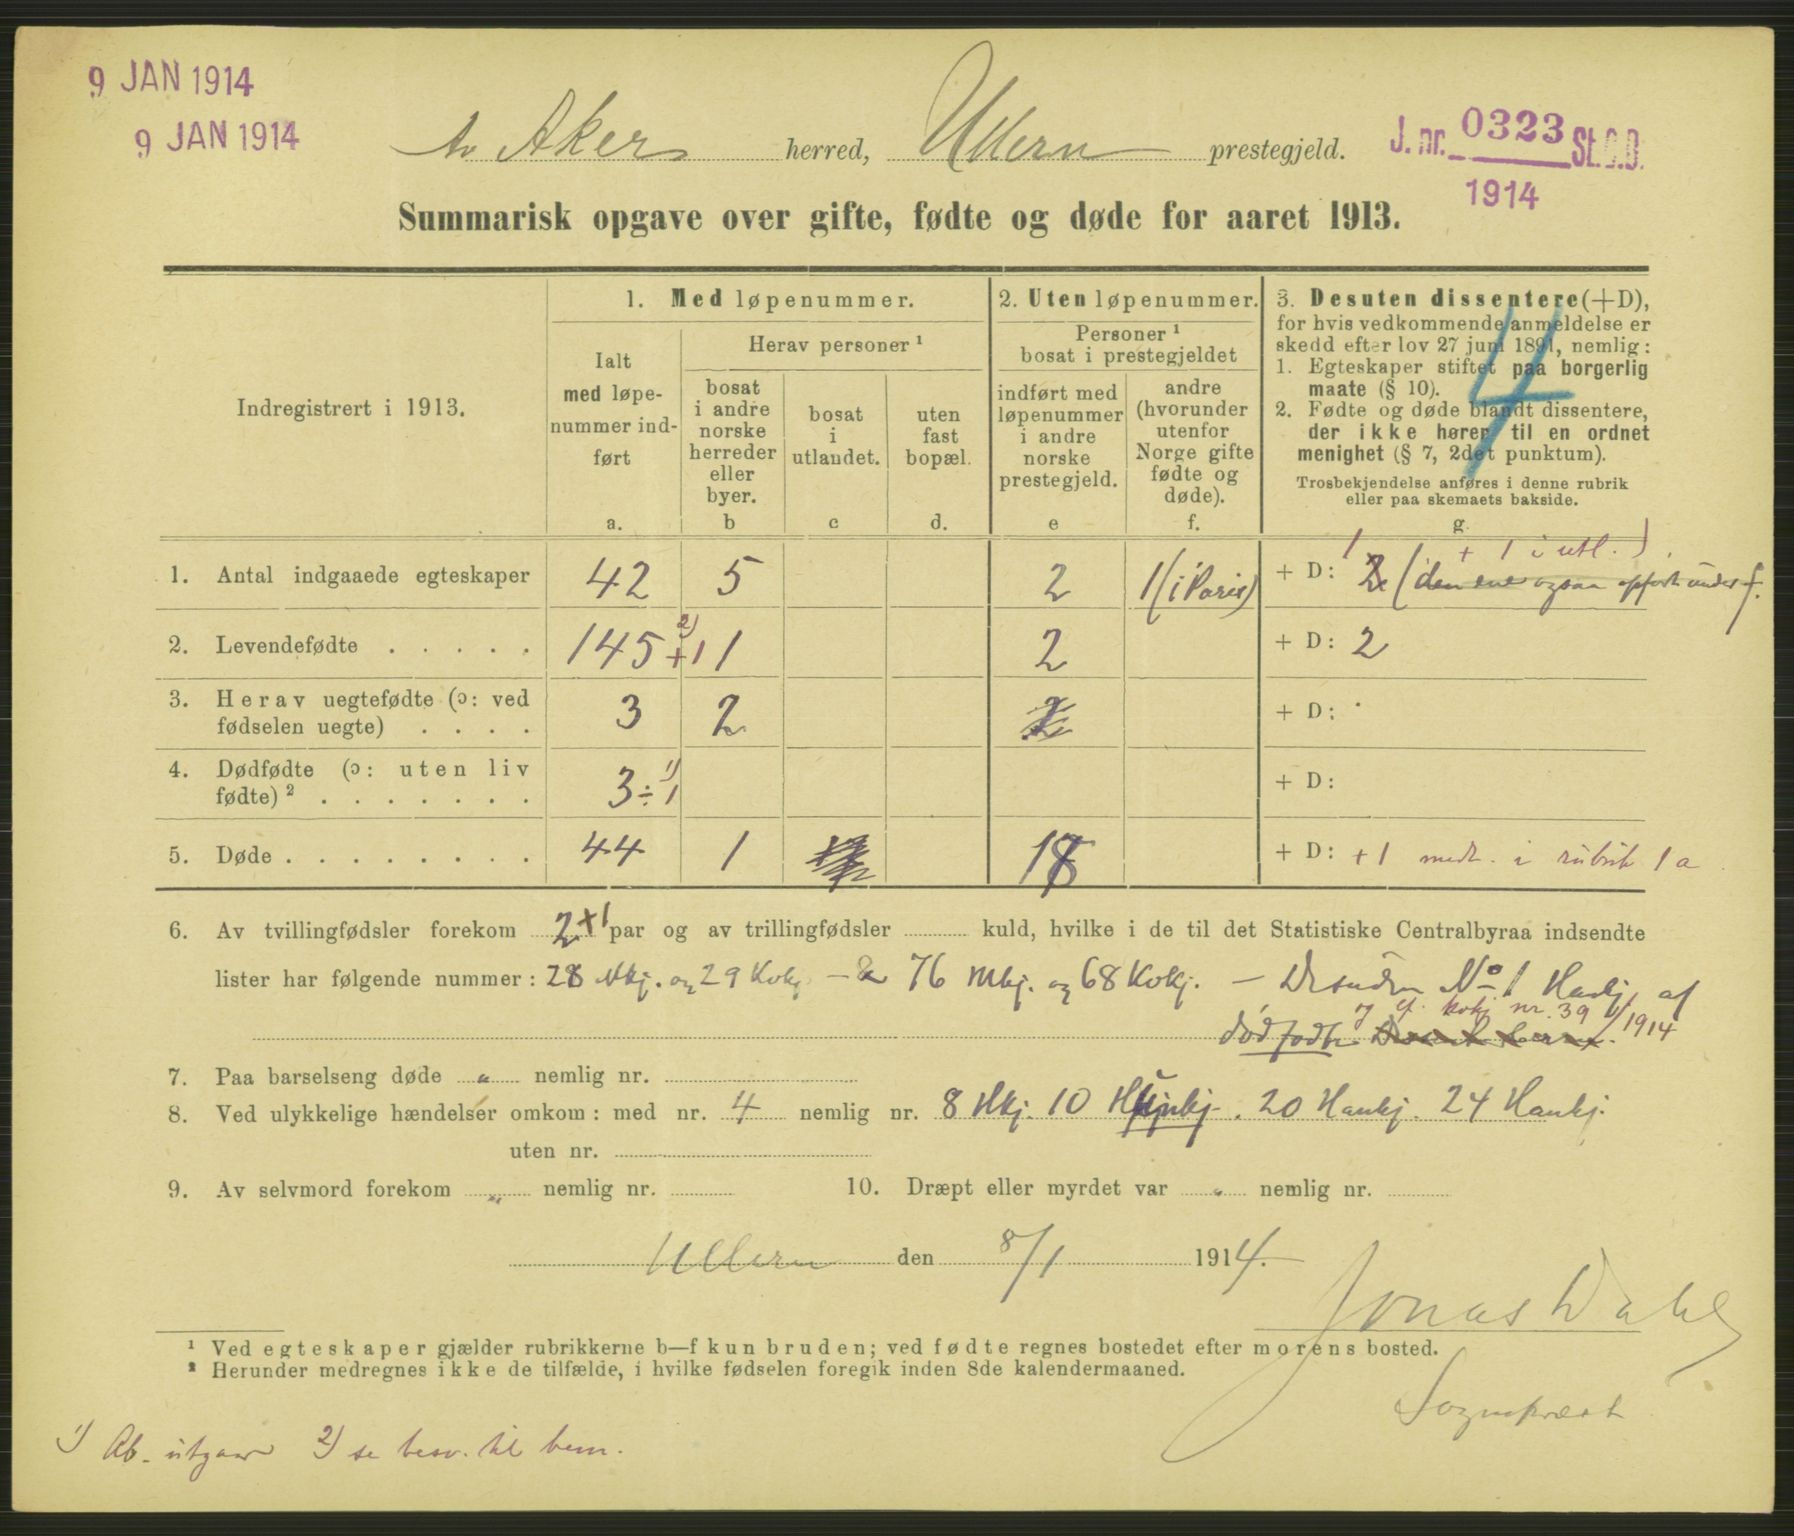 9 JAN 1914
9 JAN 1914
Av Aker herred, Ullern prestegjeld.
J. nr. 0323 St.C.B.
1914
Summarisk opgave over gifte, fødte og døde for aaret 1913.
Indregistrert i 1913.
1. Med løpenummer.
Ialt med løpenummer indført
a.
Herav personer ¹
bosat i andre norske herreder eller byer.
b
bosat i utlandet.
c
uten fast bopæl.
d.
2. Uten løpenummer.
Personer ¹ bosat i prestegjeldet
indført med løpenummer i andre norske prestegjeld.
e
andre (hvorunder utenfor Norge gifte fødte og døde).
f.
3. Desuten dissentere (+D),
for hvis vedkommende anmeldelse er
skedd efter lov 27 juni 1891, nemlig:
1. Egteskaper stiftet paa borgerlig
maate (§ 10).
2. Fødte og døde blandt dissentere,
der ikke hører til en ordnet
menighet (§ 7, 2det punktum).
Trosbekjendelse anføres i denne rubrik
eller paa skemaets bakside.
g.
4
1 + 1 i utl. ).
1. Antal indgaaede egteskaper 42 5 2 1 (i Paris) + D: 2 (den ene ogsaa opført under f.
2. Levendefødte . . . . . 145 +1 2) 1 2 + D: 2
3. Herav uegtefødte (ɔ: ved
fødselen uegte) . . . . 3 2 2 + D:
4. Dødfødte (ɔ: uten liv
fødte) ² . . . . . . . 3 ÷ 1 1) + D:
5. Døde . . . . . . . . 44 1 + D: +1 medt. i rubrik 1 a
6. Av tvillingfødsler forekom 2 +1 par og av trillingfødsler kuld, hvilke i de til det Statistiske Centralbyraa indsendte
lister har følgende nummer: 28 Mkj. og 29 Kvkj. — 76 Mkj. og 68 Kvkj. — Desuden No 1 Hankj. af
og cf. kvkj. nr. 39 1/1914
dødfødte
7. Paa barselseng døde " nemlig nr.
8. Ved ulykkelige hændelser omkom: med nr. 4 nemlig nr. 8 Hkj. 10 Hankj. 20 Hankj. 24 Hankj.
uten nr.
9. Av selvmord forekom " nemlig nr. 10. Dræpt eller myrdet var " nemlig nr.
Ullern den 8/1 1914.
Jonas Dahl
Sogneprest
¹ Ved egteskaper gjælder rubrikkerne b—f kun bruden; ved fødte regnes bostedet efter morens bosted.
² Herunder medregnes ikke de tilfælde, i hvilke fødselen foregik inden 8de kalendermaaned.
1) Ab. utgaar 2) se besv. til bem.